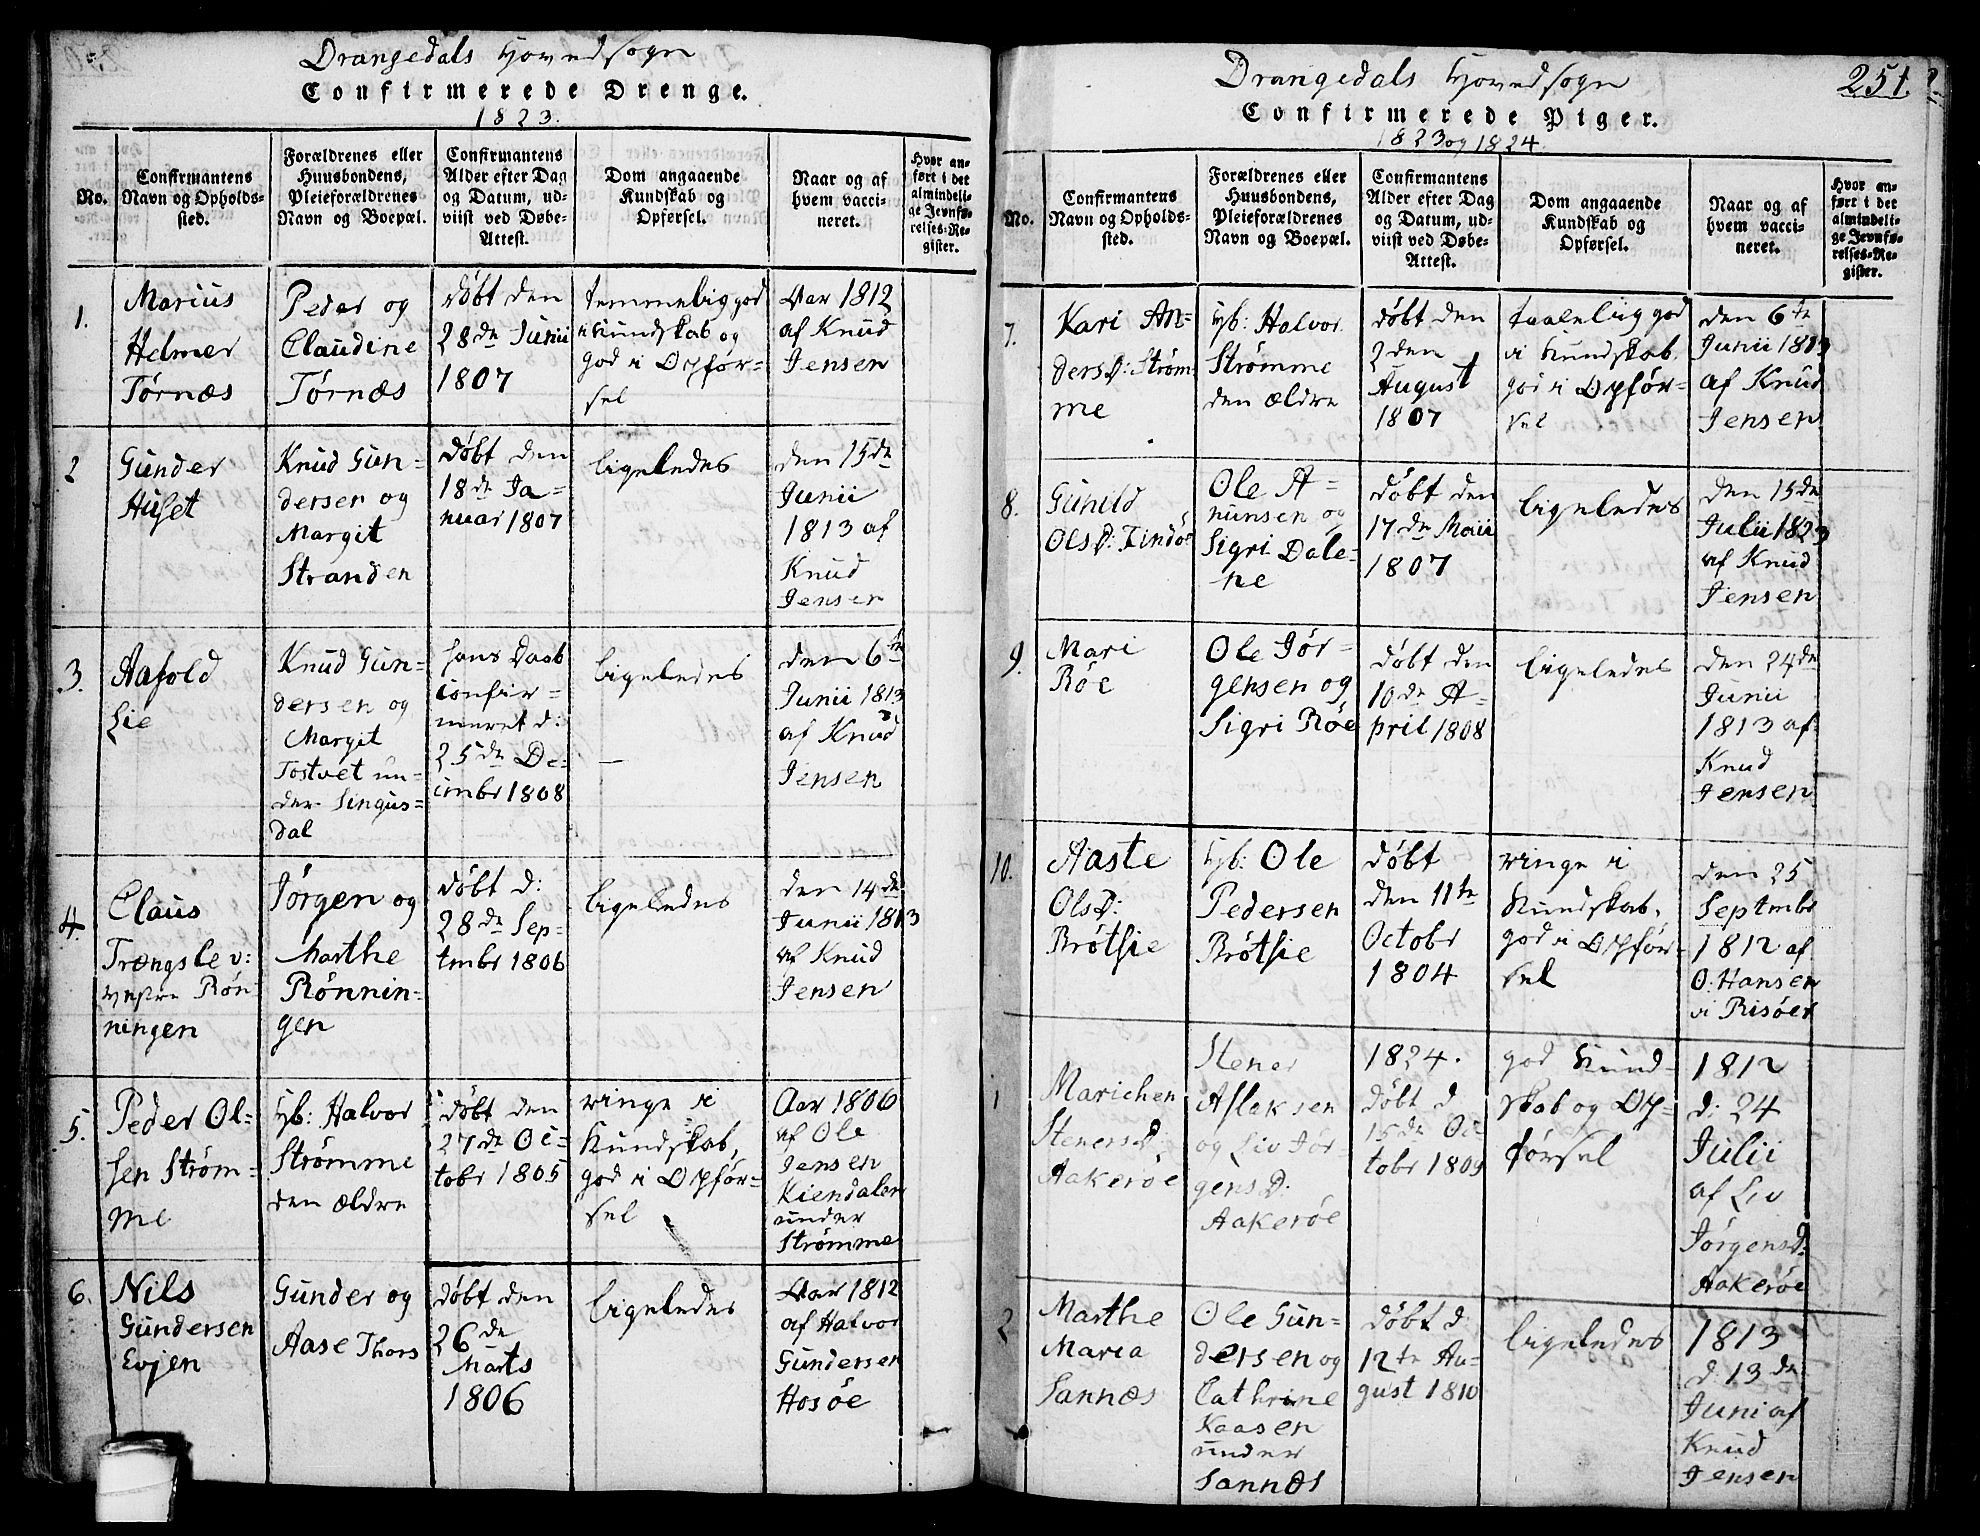 Drangedals Hovedsogn
Confirmerede Drenge.
1823.
No.
Confirmantens
Navn og Opholds-
sted.
Forældrenes eller
Huusbondens,
Pleieforældrenes
Navn og Boepæl.
Confirmantens
Alder efter Dag
og Datum, ud-
viist ved Døbe-
Attest.
Dom angaaende
Kundskab og
Opførsel.
Naar og af
hvem vacci-
neret.
Hvor an-
ført i det
almindeli-
ge Jevnfø-
relses-Re-
gister.
1.
Marius
Helmer
Tørnæs
Peder og
Claudine
Tørnæs
Døbt den
28de Junii
1807
temmelig god
i Kundskab og
god i Opfør=
sel
Aar 1812
af Knud
Jensen
2
Gunder
Huset
Knud Gun=
dersen og
Margit
Stranden
Døbt den
18de Ja=
nuar 1807
ligeledes
den 15de
Junii
1813 af
Knud
Jensen
3.
Aasold
Lie
Knud Gun=
dersen og
Margit
Tostvet un=
der Lingus=
dal
hans Daab
confir=
meret d:
25de De=
cembr 1808
ligeledes
den 6te
Junii 1813
af Knud
Jensen
4.
Claus
Trængslev:
vestre Røn
ningen
Jørgen og
Marthe
Rønnin=
gen
Døbt d:
28de Sep=
tmbr 1806
ligeledes
den 14de
Junii 1813
af Knud
Jensen
5.
Peder Ol=
sen Strøm=
me
Hb: Halvor
Strømme
den ældre
døbt den
27de Oc=
tobr 1805
ringe i
Kundskab,
god i Opfør=
sel
Aar 1806
af Ole
Jensen
Kiendalen
under
Strømme
6.
Nils
Gundersen
Evjen
Gunder og
Aase Thors
Døbt den
26de
Marts
1806
ligeledes
Aar 1812
af Halvor
Gundersen
Hosøe
Drangedals Hovedsogn
251.
Confirmerede Piger.
1823 og 1824.
No.
Confirmantens
Navn og Opholds-
sted.
Forældrenes eller
Huusbondens,
Pleieforældrenes
Navn og Boepæl.
Confirmantens
Alder efter Dag
og Datum, ud-
viist ved Døbe-
Attest.
Dom angaaende
Kundskab og
Opførsel.
Naar og af
hvem vacci-
neret.
Hvor an-
ført i det
almindeli-
ge Jevnfø-
relses-Re-
gister.
7.
Kari An=
dersD: Strøm
me
Hb: Halvor
Strømme
den ældre
døbt den
2den
August
1807
taalelig god
i Kundskab.
god i Opfør=
sel
den 6te
Junii 1813
af Knud
Jensen
8.
Gunild
OlsD: Tindøe
Ole A=
nunsen og
Sigri Dale=
ne
døbt den
17de Maii
1807
ligeledes
den 15de
Julii 1823
af Knud
Jensen
9.
Mari
Røe
Ole Jør=
gensen og
Sigri Røe
døbt den
10de A=
pril 1808
ligeledes
den 24de
Junii
1813 af
Knud
Jensen
10.
Aaste
OlsD:
Brøtsie
Hb: Ole
Pedersen
Brøtsie
døbt
den 11te
Octobr
1804
ringe i
Kundskab.
god i Opfør=
sel
den 25
Septmbr
1812 af
O: Hansen
i Risøer
1
Marichen
StenersD:
Aakerøe
Stener
Aslaksen
og Liv Jør=
gensD:
Aakerøe
1824.
døbt d
15de Oc=
tobr 1809
god Kund=
skab og Op=
førsel
1812
d: 24
Julii
af Liv
JørgensD:
Aakerøe
2
Marthe
Maria
Sannæs
Ole Gun=
dersen og
Cathrine
Kaasen
under
Sannæs
døbt d
12te Au=
gust 1810
ligeledes
1813
d. 13de
Juni af
Knud
Jensen